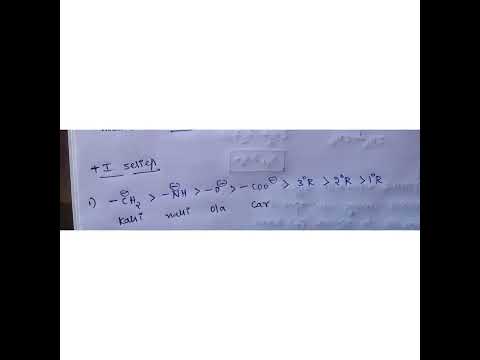 +I series
1) -C⊖H₂ > -N⊖H > -O⊖ > -COO⊖ > 3°R > 2°R > 1°R
Kali nahi ola car